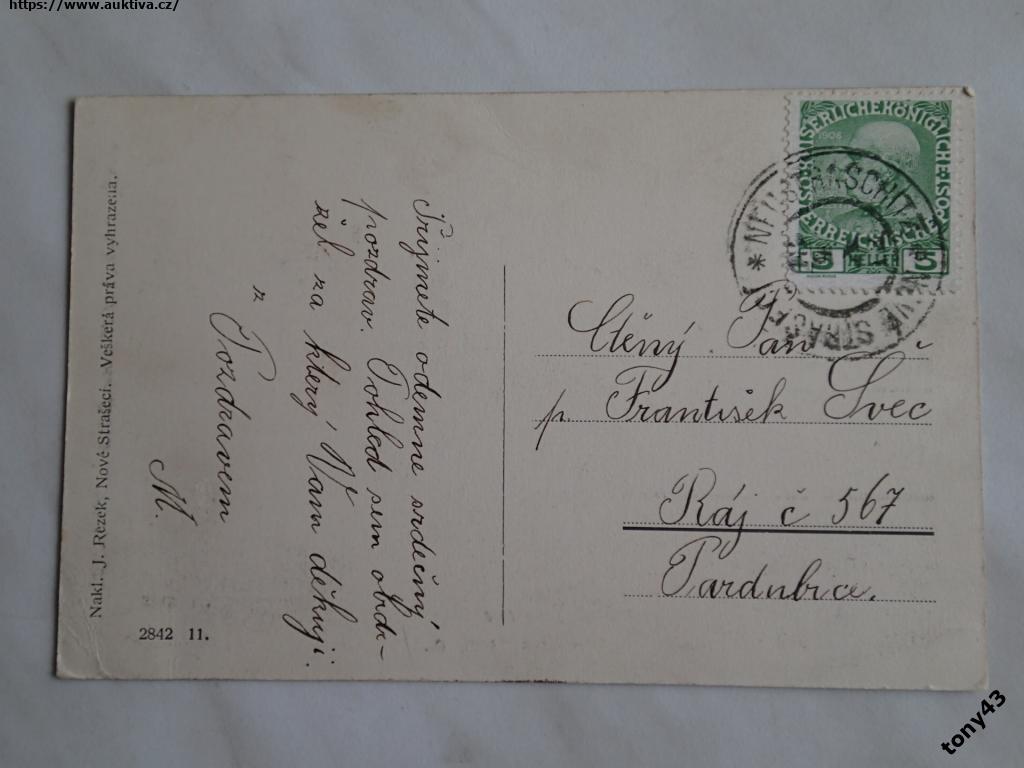 https://www.auktiva.cz/
Nakl. J. Rezek, Nové Strašecí. Veškerá práva vyhrazena.
2842 11.
Prijmete odemne srdečný
pozdrav. Pohled sem obdr-
žel za který, Vam děkuji.
z
Pozdravem
M.
KAISERLICHE KÖNIGLICHE
ÖSTERREICHISCHE
1908
5 HELLER 5
* NEUSTRASCHITZ
NOVÉ STRAŠECÍ
Ctěný Pan
p. František Švec
Ráj č 567
Pardubice.
tony43